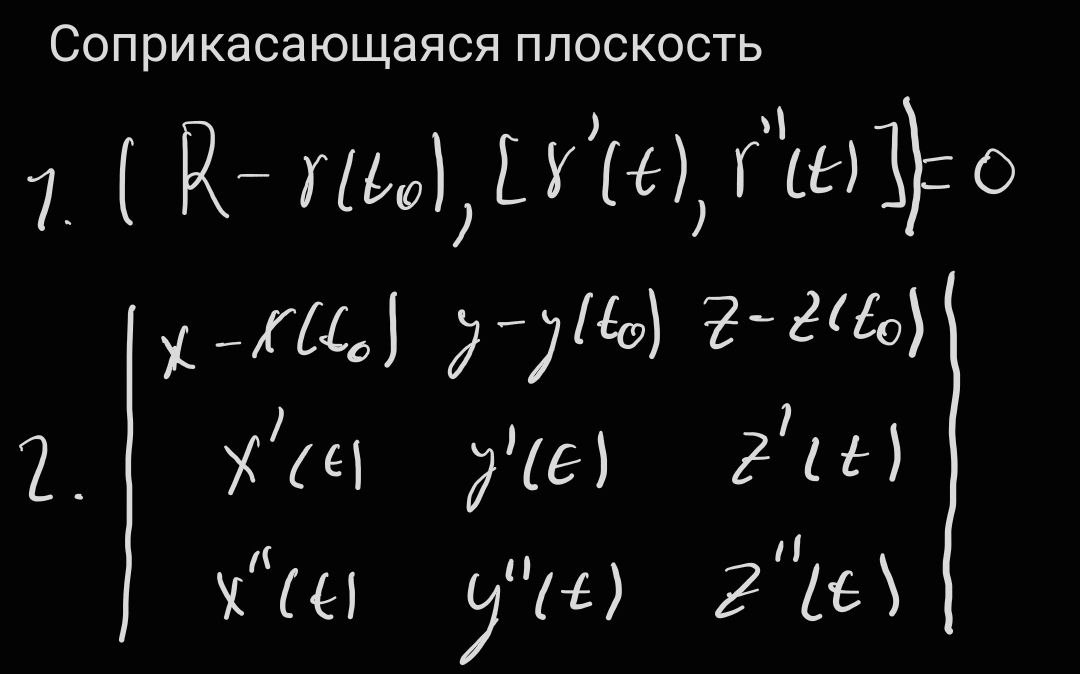 Соприкасающаяся плоскость
1. ( R - r(t₀), [r'(t), r''(t)]) = 0
x - x(t₀) y - y(t₀) z - z(t₀)
2. | x'(t) y'(t) z'(t) |
x''(t) y''(t) z''(t)